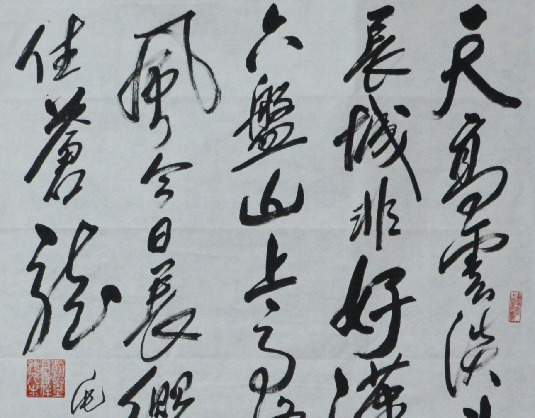 天高雲淡
長城非好漢
六盤山上高
風今日長纓
住蒼龍